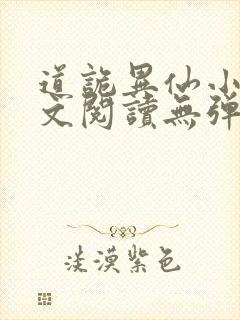 道詭異仙小
文閱讀無彈
淡漠紫色